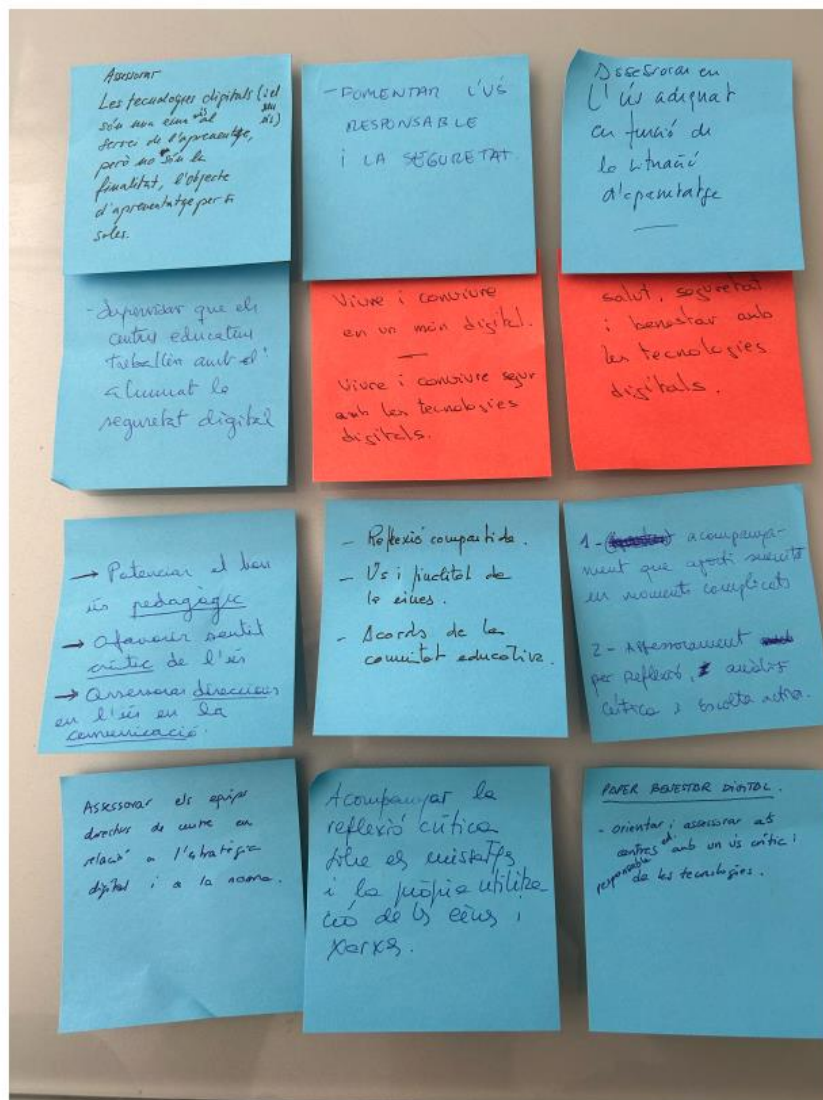 Assessorar
Les tecnologies digitals (i el
seu
ús)
són una eina més al
servei de l'aprenentatge,
però no són la
finalitat, l'objecte
d'aprenentatge per si
soles.
- FOMENTAR L'ÚS
RESPONSABLE
i LA SEGURETAT
Assessorar en
l'ús adequat
en funció de
la situació
d'aprenentatge
- Supervisar que els
centres educatius
treballin amb l'
alumnat la
seguretat digital
Viure i conviure
en un món digital.
Viure i conviure segur
amb les tecnologies
digitals.
salut, seguretat
i benestar amb
les tecnologies
digitals.
→ Potenciar el bon
ús pedagògic
→ Afavorir sentit
crític de l'ús
→ Assessorar direccions
en l'ús en la
comunicació.
- Reflexió compartida.
- Ús i finalitat de
la eines.
- Acords de la
comunitat educativa.
1 - acompanya-
ment que aporti serenitat
en moments complicats
2 - Assessorament
per reflexió, anàlisi
crítica i escolta activa.
Assessorar els equips
directius de centre en
relació a l'estratègia
digital i a la norma.
Acompanyar la
reflexió crítica
sobre els missatges
i la pròpia utilitza
ció de les eines i
xarxes.
PAPER BENESTAR DIGITAL.
- Orientar i assessorar als
centres en amb un ús crític i
responsable de les tecnologies.